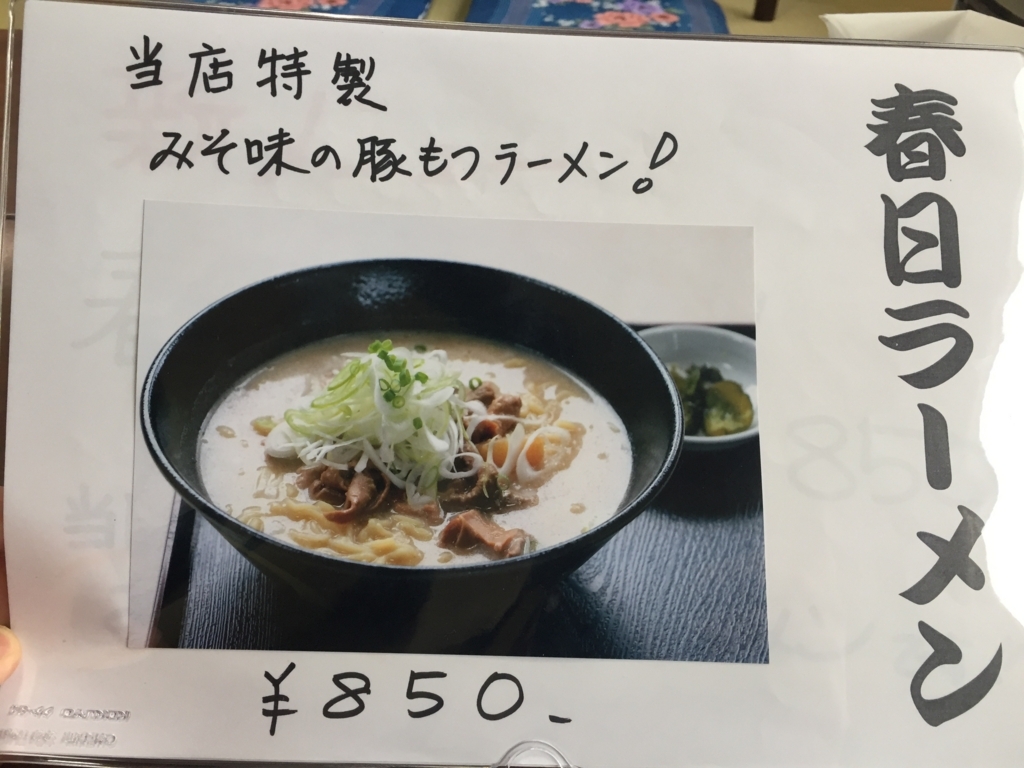 春日ラーメン
当店特製
みそ味の豚もつラーメン!
¥850-